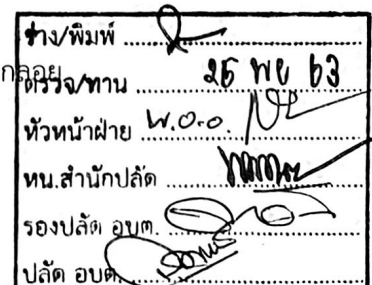 ร่าง/พิมพ์
กลอย
ตรวจ/ทาน 25 พย 63
หัวหน้าฝ่าย พ.อ.อ.
หน.สำนักปลัด
รองปลัด อบต.
ปลัด อบต.